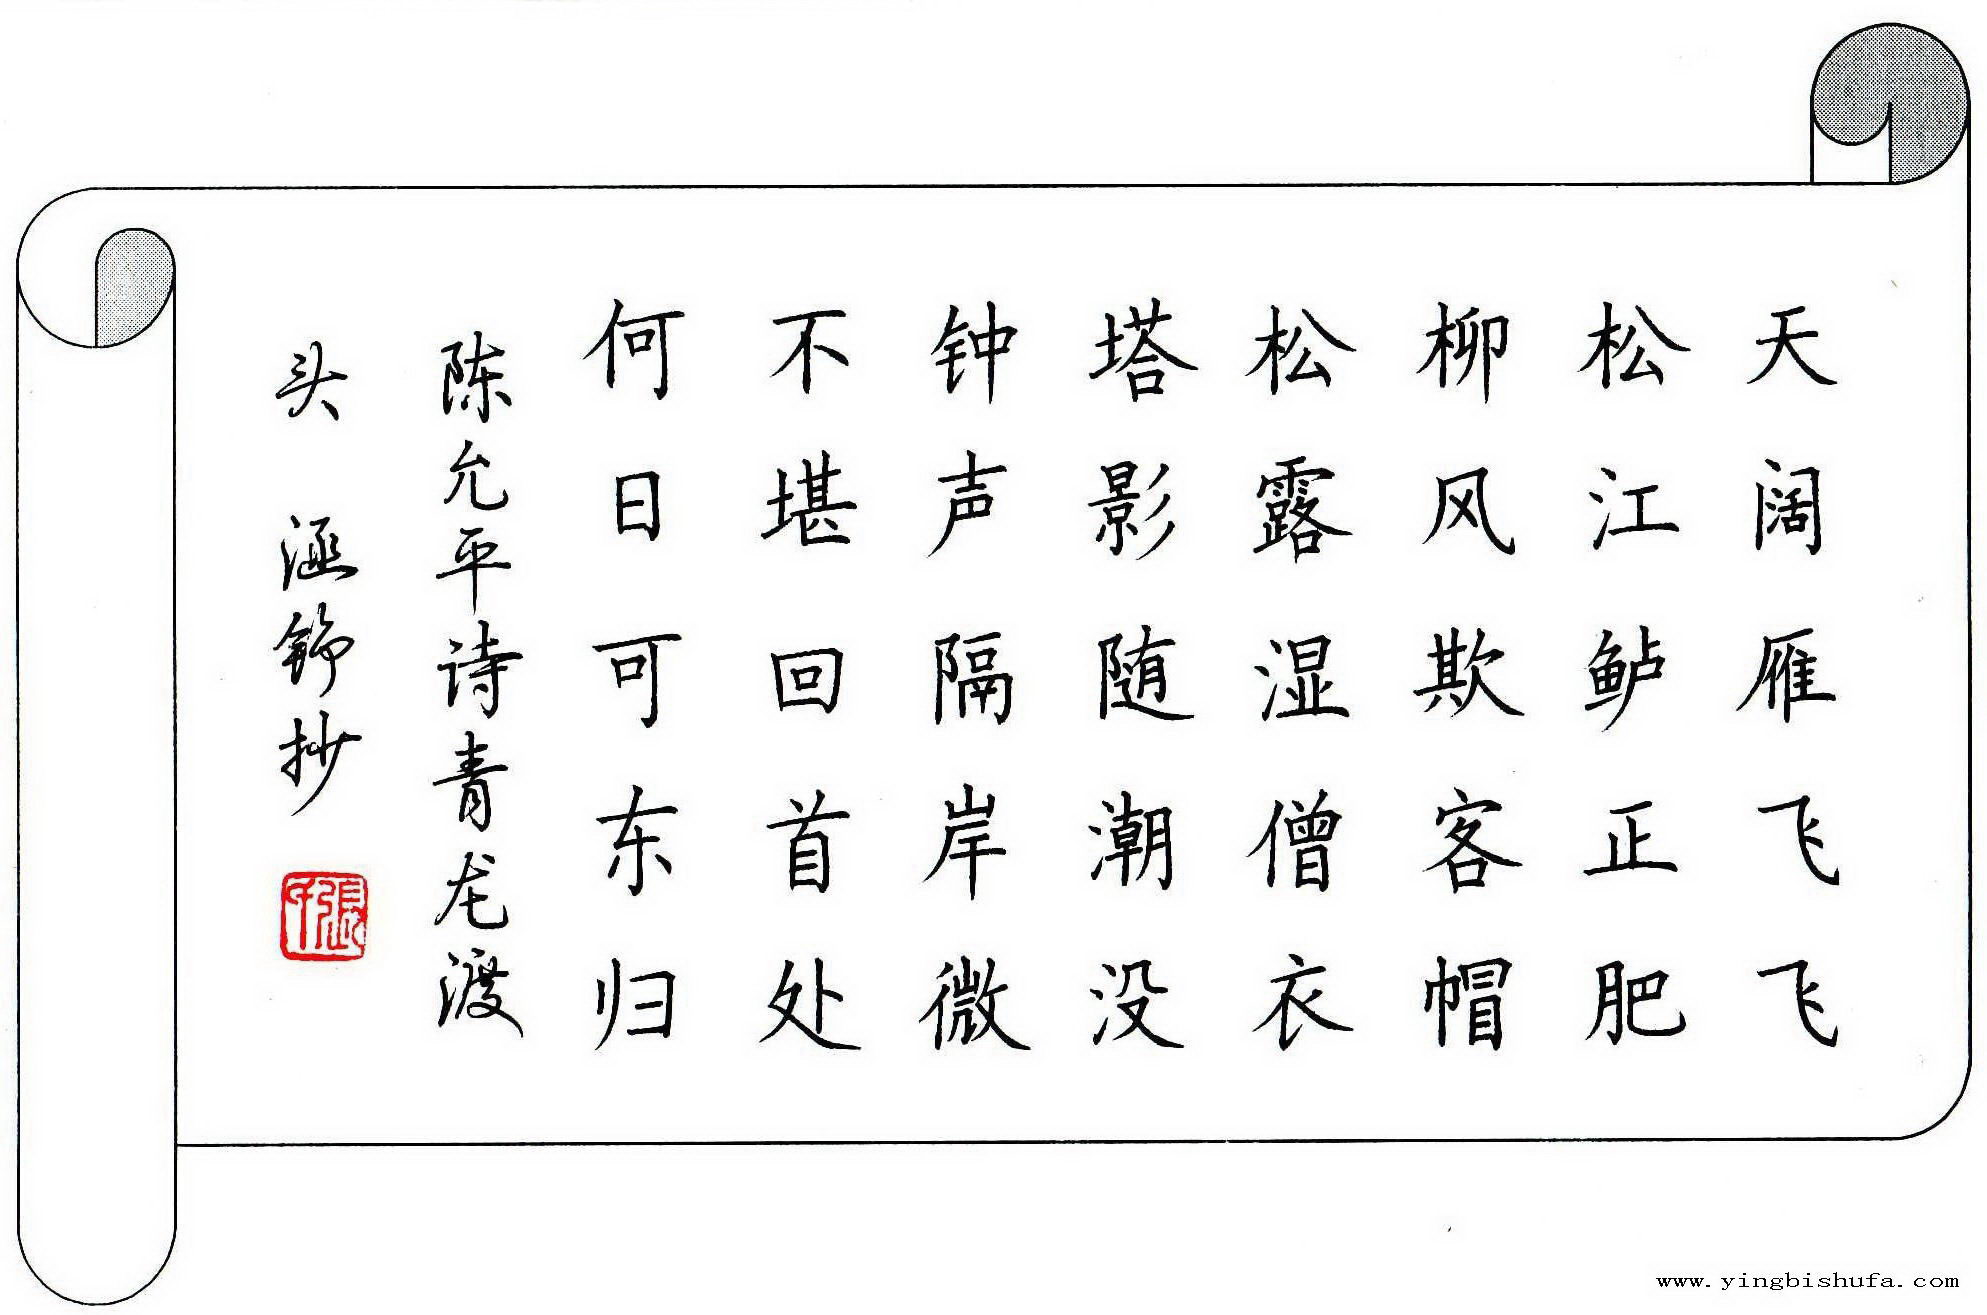 天阔雁飞飞
松江鲈正肥
柳风欺客帽
松露湿僧衣
塔影随潮没
钟声隔岸微
不堪回首处
何日可东归
陈允平诗青龙渡
头 涵錚抄
www.yingbishufa.com